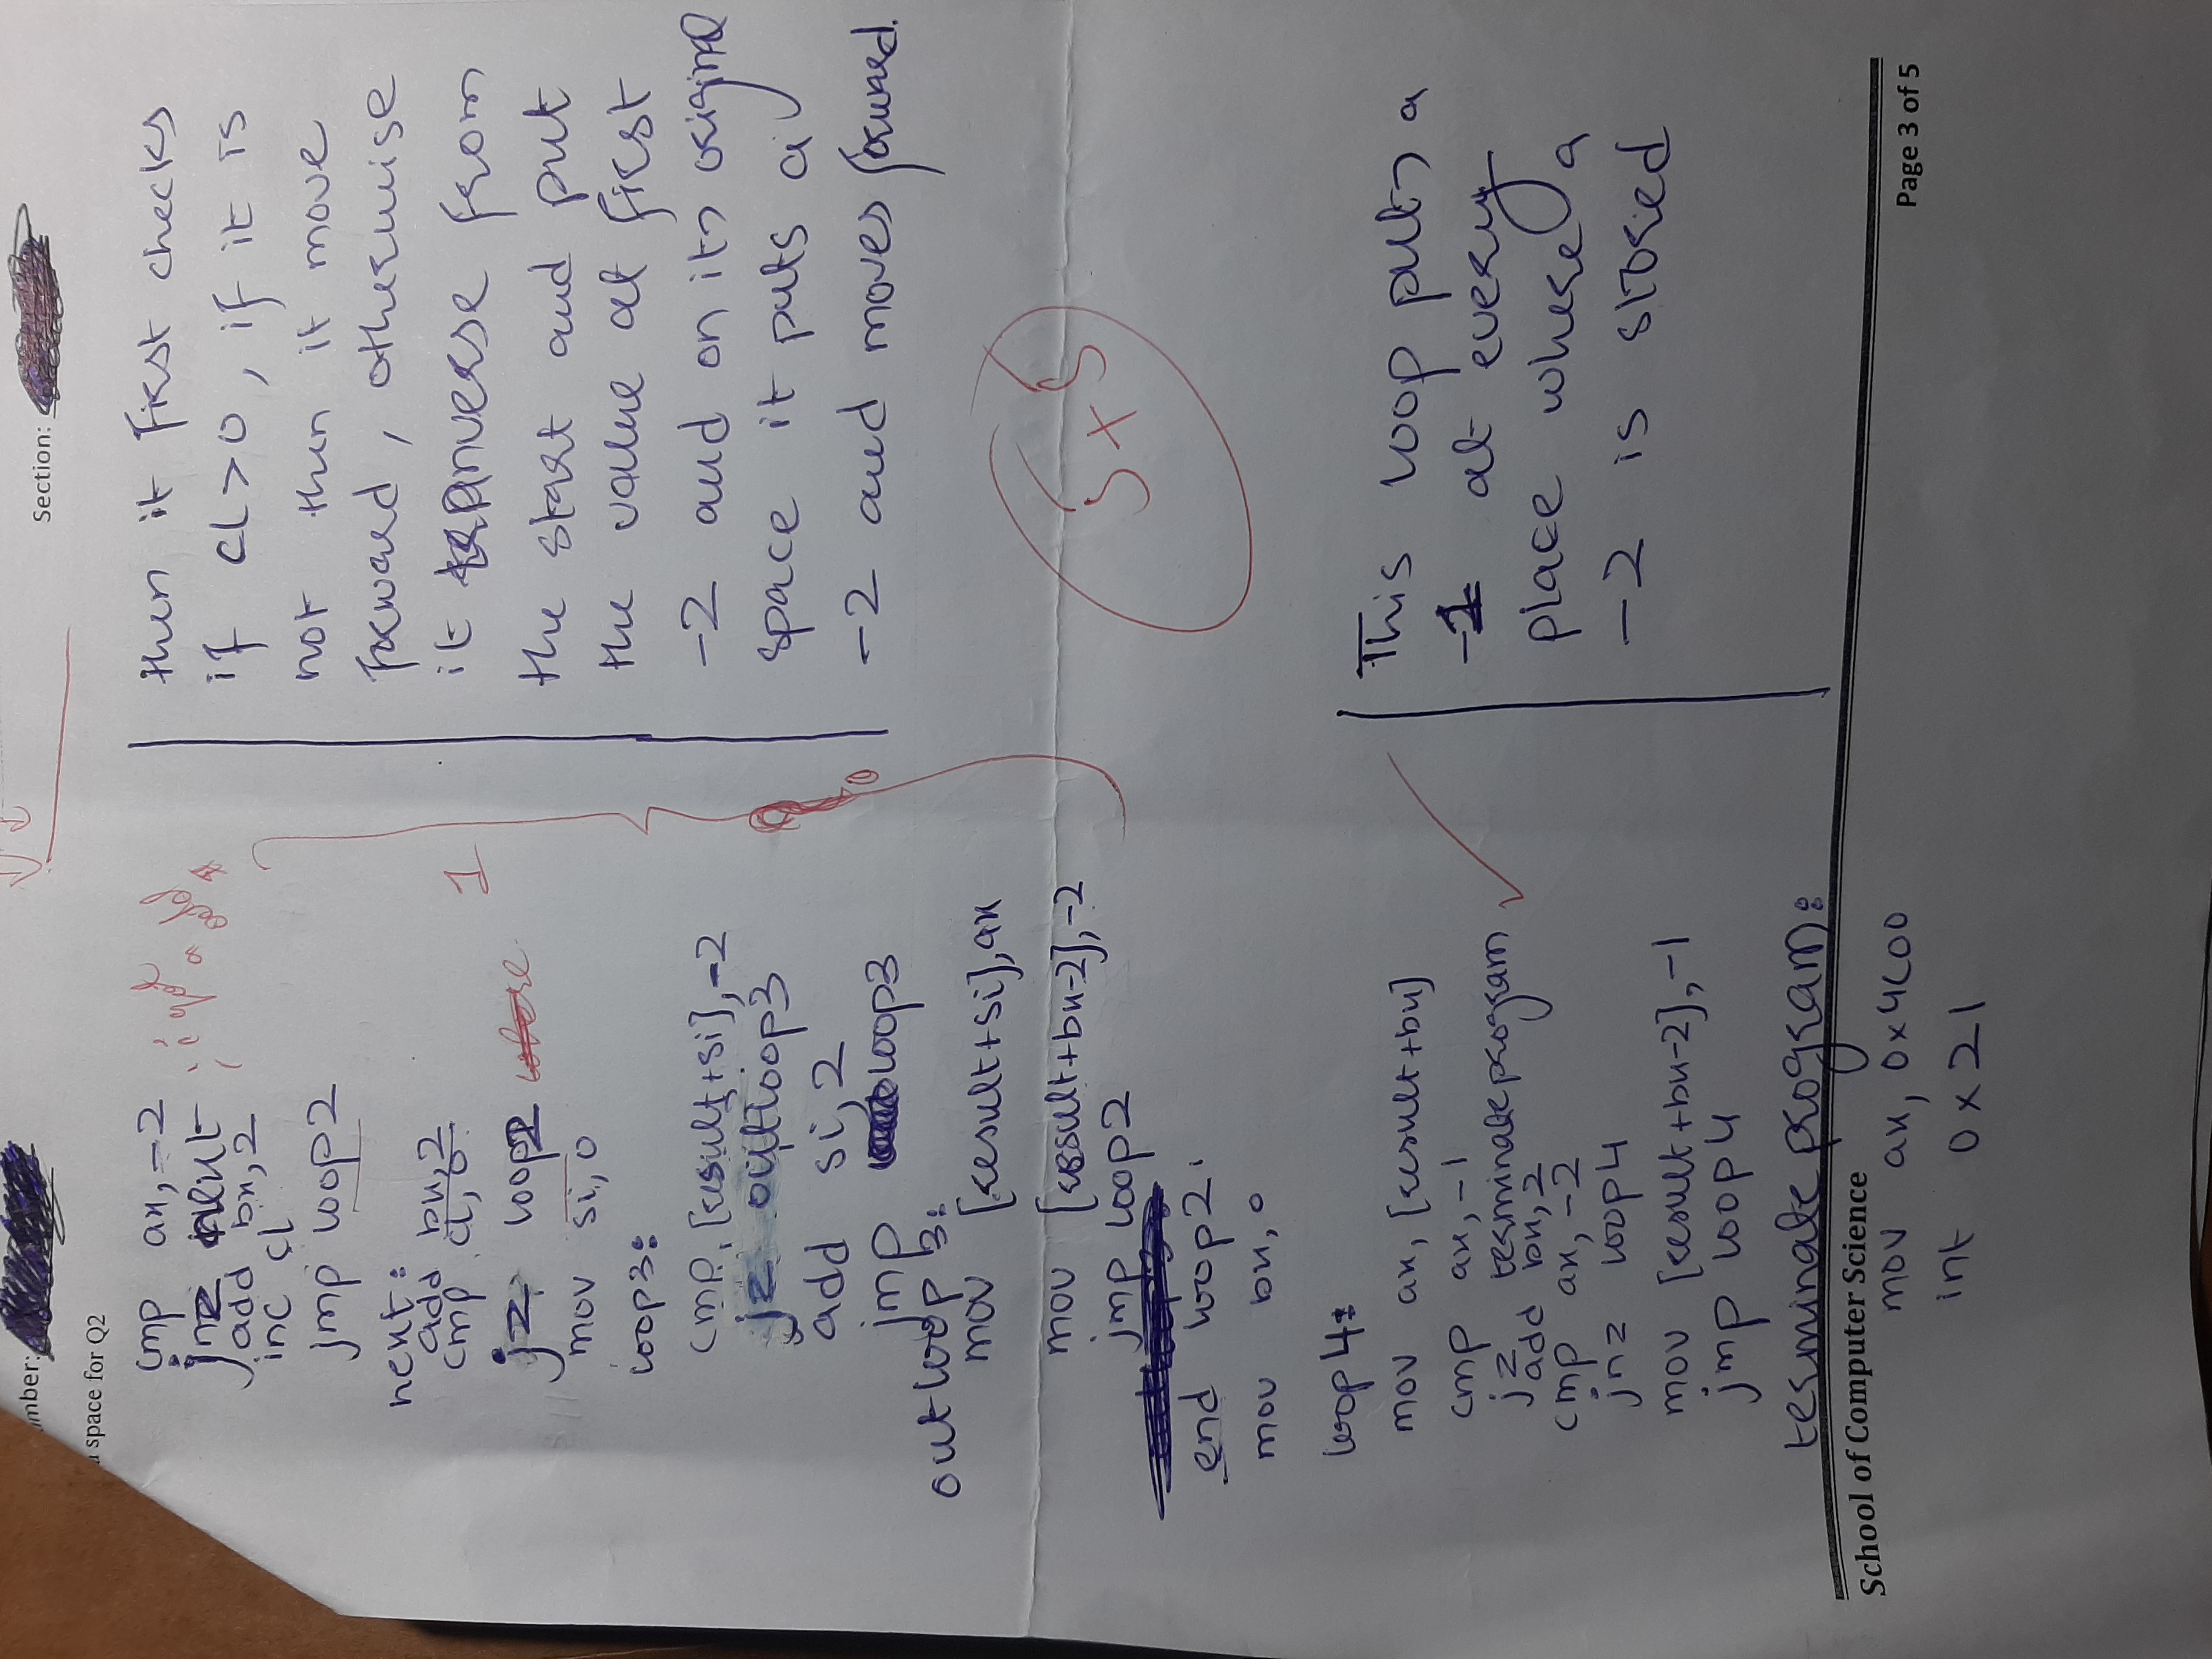 mber:
Section:
space for Q2
cmp ax, -2
jnz next
; i got a odd #
add bx, 2
inc cl
jmp loop2
next:
add bx, 2
cmp cl, 0
jz loop2
mov si, 0
loop3:
cmp [result+si], -2
jz outloop3
add si, 2
jmp loop3
outloop3:
mov [result+si], ax
mov [result+bx-2], -2
jmp loop2
end loop2:
mov bx, 0
loop4:
mov ax, [result+bx]
cmp ax, -1
jz terminateprogram
add bx, 2
cmp ax, -2
jnz loop4
mov [result+bx-2], -1
jmp loop4
terminate program:
mov ax, 0x4C00
int 0x21
1
then it first checks
if cl>0, if it is
not then it move
forward, otherwise
it tranverse from
the start and put
the value at first
-2 and on its original
space it puts a
-2 and moves forward.
This loop puts a
-1 at every
place where a
-2 is stored
School of Computer Science
Page 3 of 5